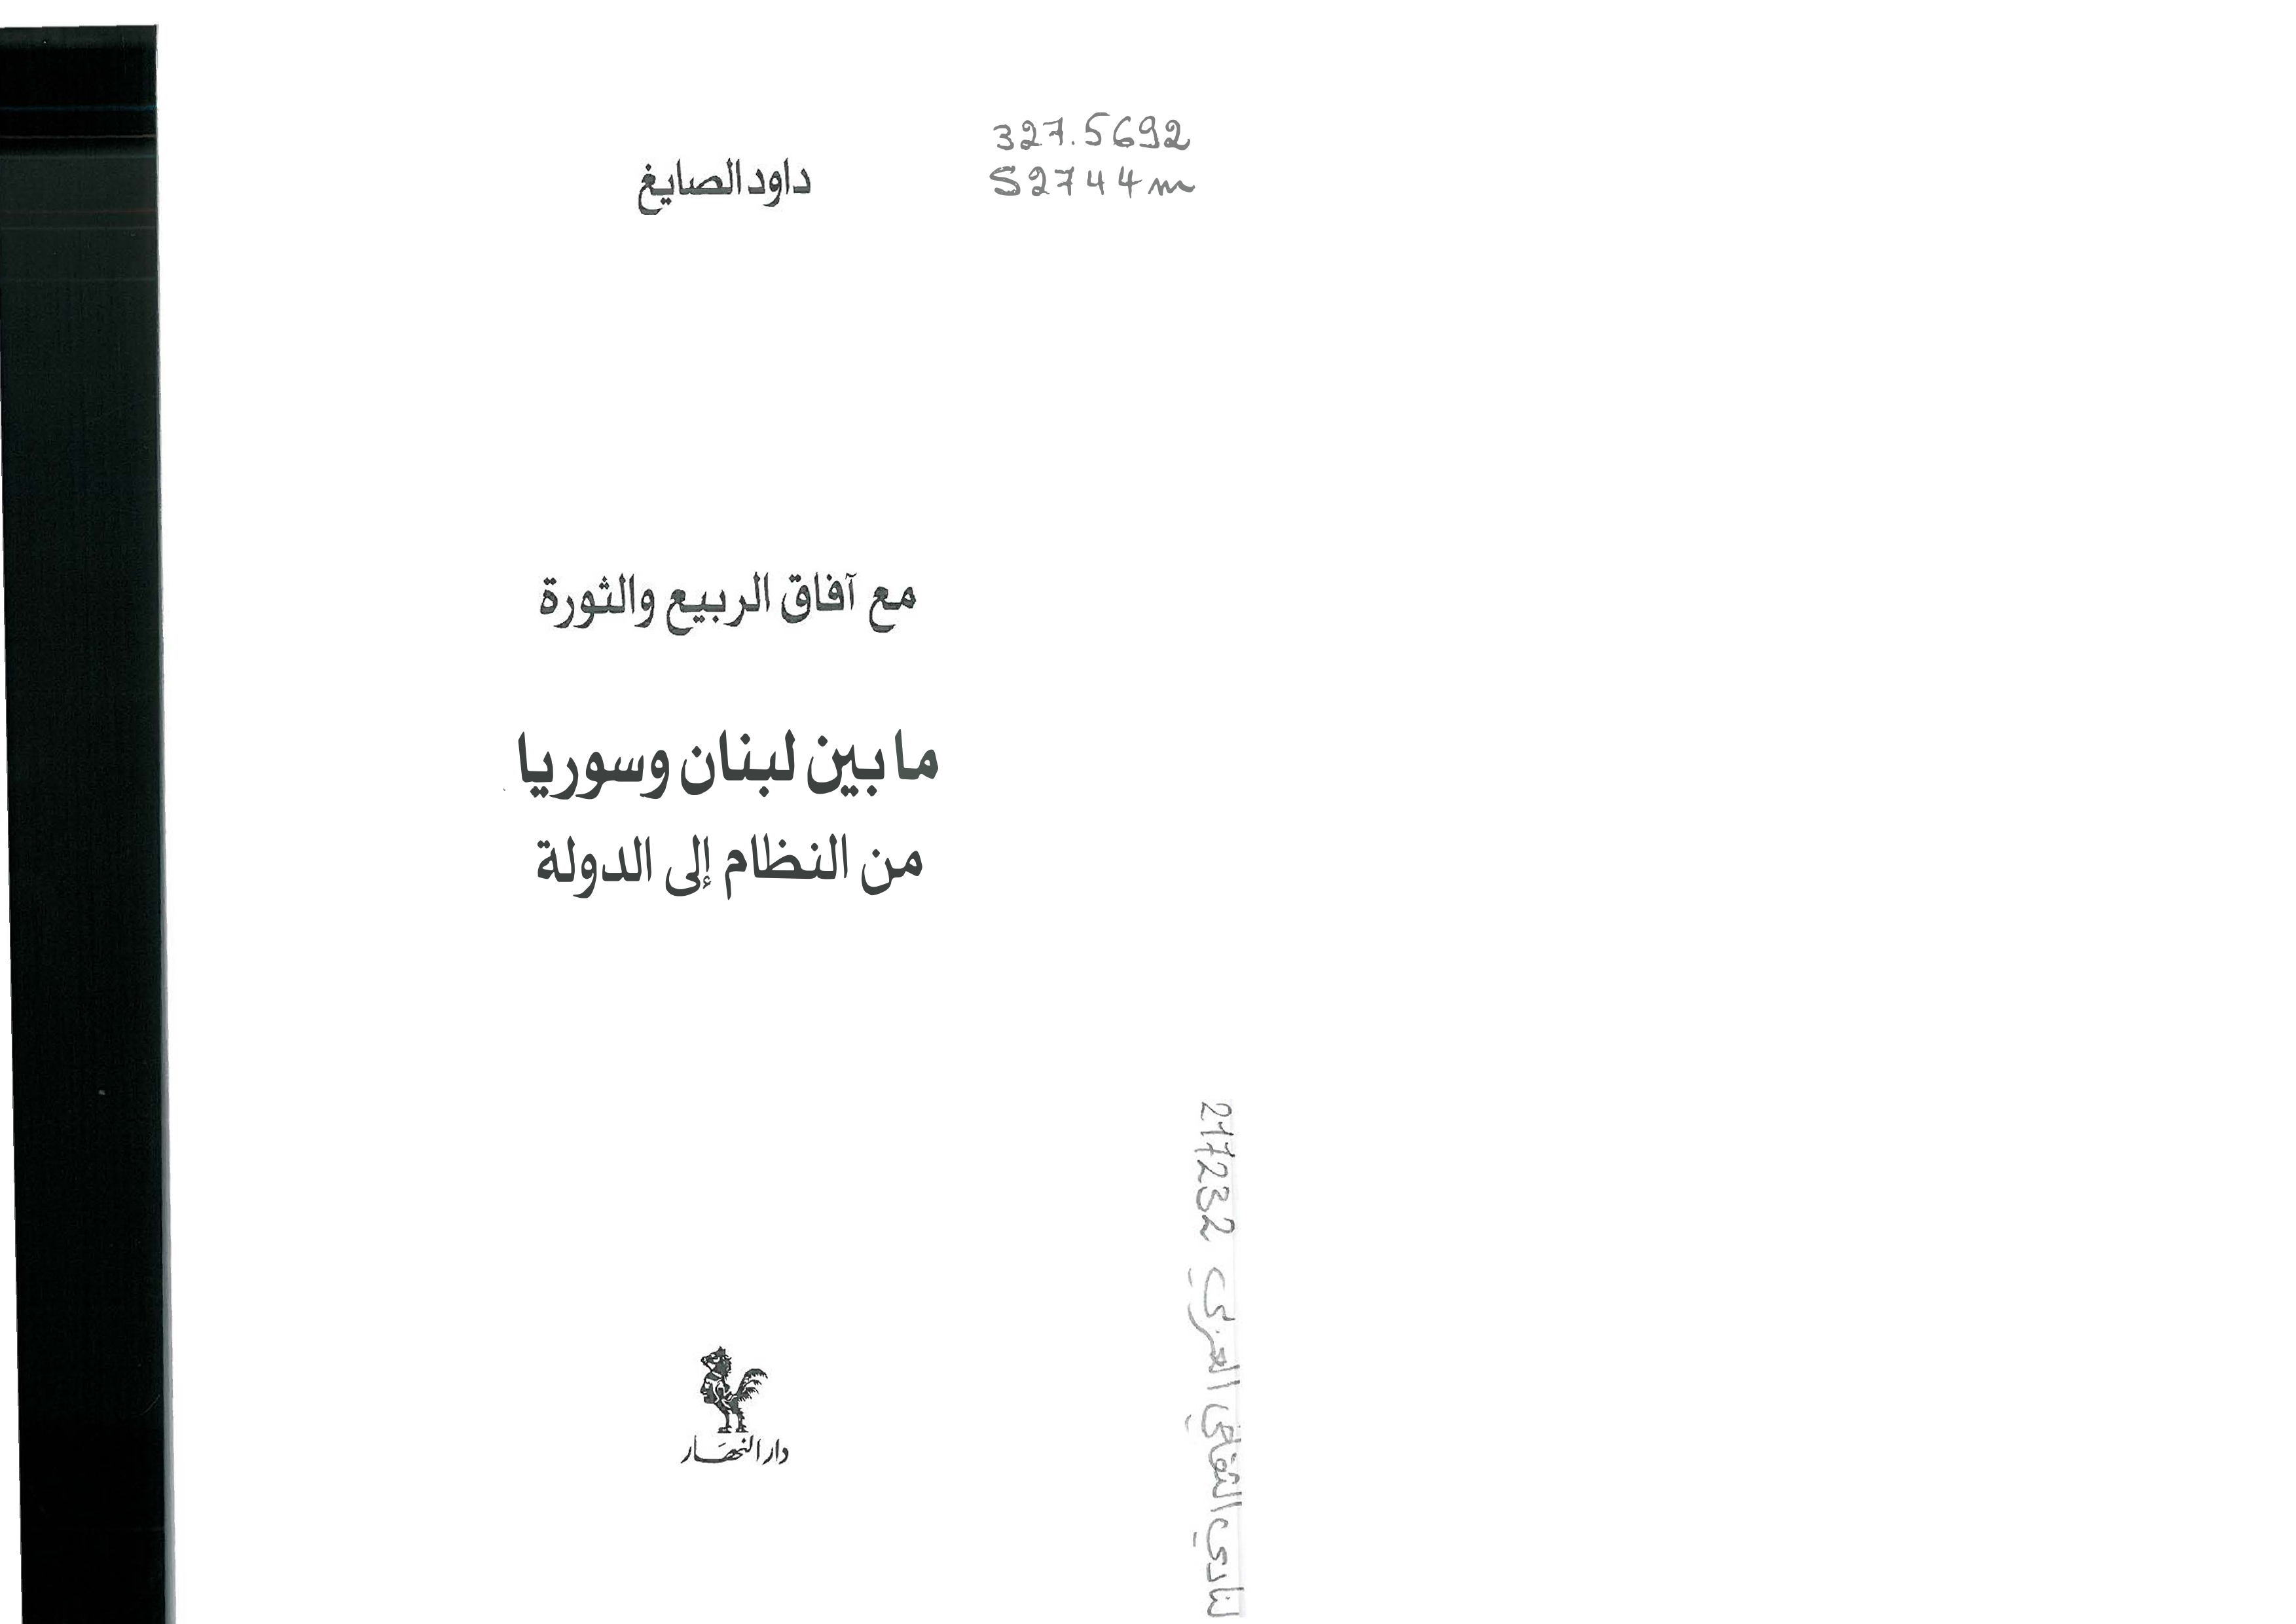 327.5692
S2744m
داود الصايغ
مع آفاق الربيع والثورة
ما بين لبنان وسوريا
من النظام إلى الدولة
دار النهار
النادي الثقافي العربي